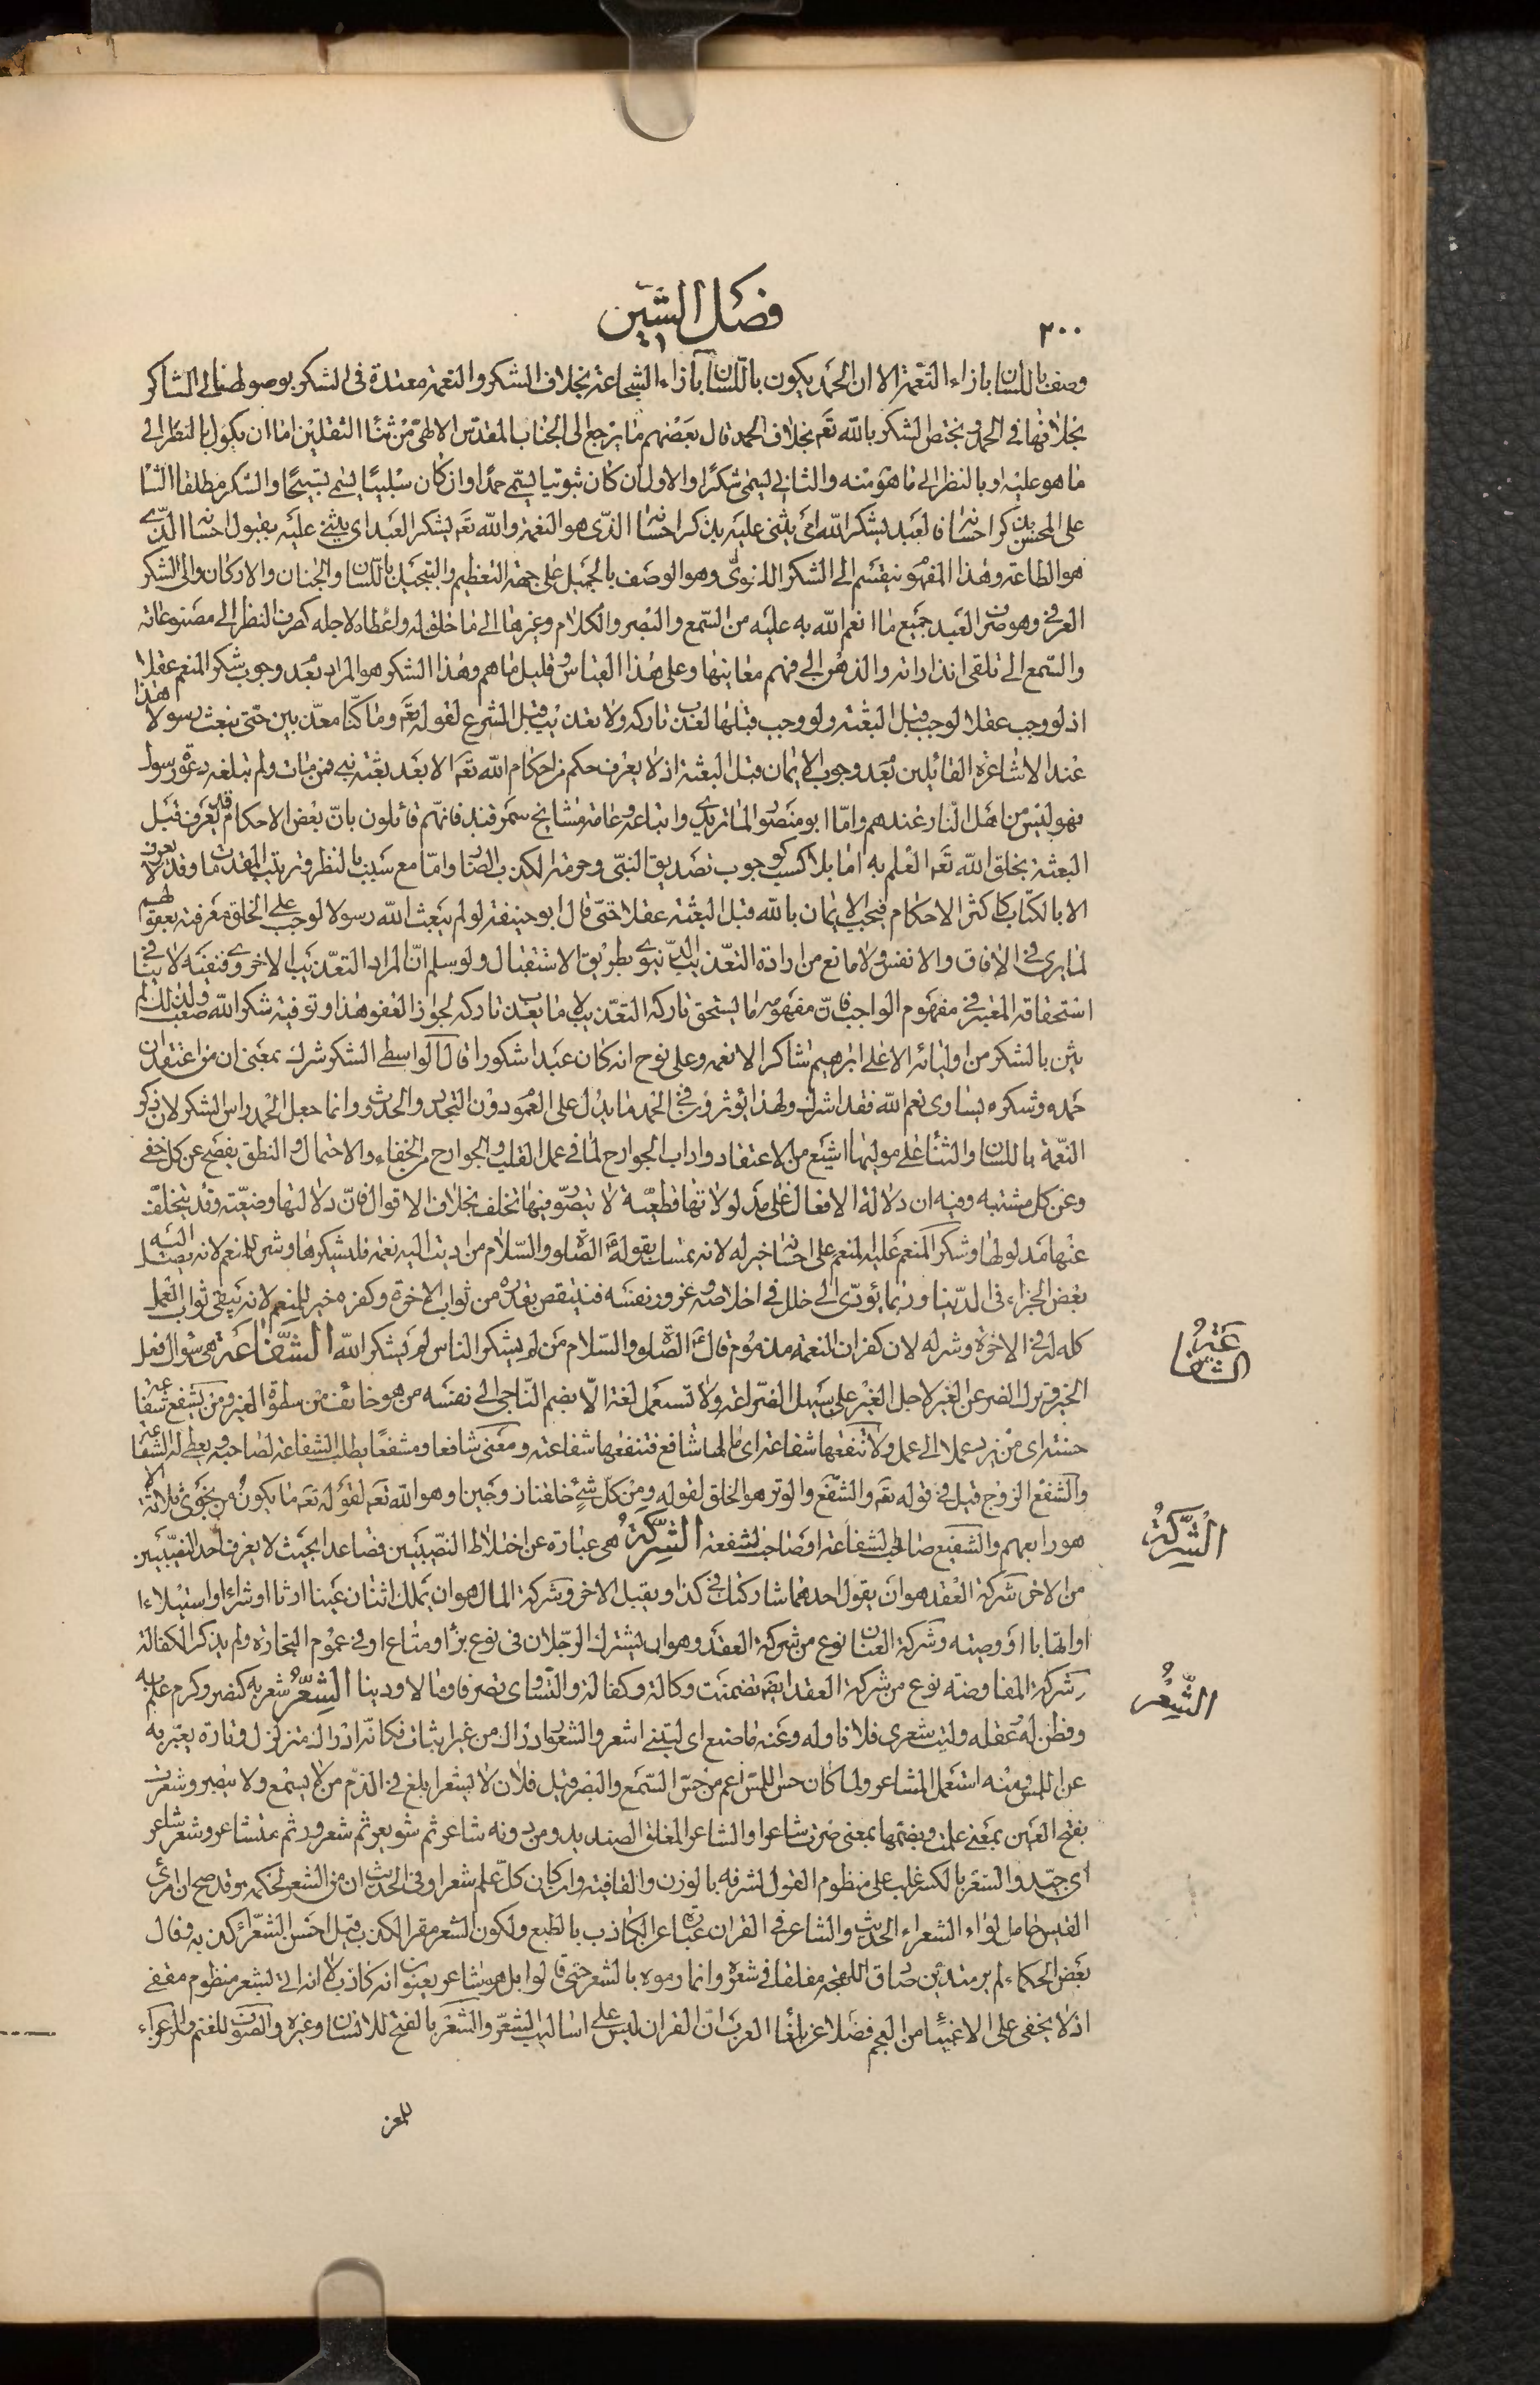 ٢٠٠
فصل الشين
وصف باللسان بازاء النعمة الا ان الحمد يكون باللسان بازاء الشجاعة بخلاف الشكر والنعمة معتدة في الشكر بوصولها الى الشاكر
بخلافها في الحمد ويختص الشكر بالله تعـ بخلاف الحمد قال بعضهم ما يرجع الى الجناب المقدس الالهي من ثناء الثقلين اما ان يكون بالنظر الى
ما هو عليه او بالنظر الى ما هو منه والثاني ليسمى شكرا والاول ان كان ثبوتيا يسمى حمدا وان كان سلبيا يسمى تسبيحا والشكر مطلقا الثنا
على المحسن بذكر احسانه فالعبد يشكر الله اي يثني عليه بذكر احسانه الذي هو النعمة والله تعـ يشكر العبد اي يثني عليه بقبول احسانه الذي
هو الطاعة وهذا المفهوم ينقسم الى الشكر اللغوي وهو الوصف بالجميل على جهة التعظيم والتبجيل باللسان والجنان والاركان والى الشكر
العرفي وهو صرف العبد جميع ما انعم الله به عليه من السمع والبصر والكلام وغيرها الى ما خلق له واعطاه لاجله كصرف النظر الى مصنوعاته
والسمع الى تلقى انذاراته والذهن الى فهم معانيها وعلى هذا القياس وقليل ما هم وهذا الشكر هو المراد بعدم وجوب شكر المنعم عقلا
اذ لو وجب عقلا لوجب قبل البعثة ولو وجب قبلها لعذب تاركه ولا تعذيب قبل الشرع لقوله تعـ وما كنا معذبين حتى نبعث رسولا هذا
عند الاشاعرة القائلين بعدم وجوب الايمان قبل البعثة اذ لا يعرف حكم من احكام الله تعـ الا بعد بعثة نبي فمن مات ولم تبلغه دعوة رسول
فهو ليس من اهل النار عندهم واما ابو منصور الماتريدي واتباعه وعامة مشايخ سمرقند فانهم قائلون بان بعض الاحكام قد يعرف قبل
البعثة بخلق الله تعـ العلم به اما بلا كسب كوجوب تصديق النبي وحرمة الكذب الضار واما مع سبب بالنظر وترتيب المقدمات وقد لا يعرف
الا بالكتاب كاكثر الاحكام فيجب الايمان بالله قبل البعثة عقلا حتى قال ابو حنيفة لو لم يبعث الله رسولا لوجب على الخلق معرفته بعقولهم
لما يرى في الآفاق والانفس ولا مانع من ارادة التعذيب الدنيوي بطريق الاستقبال ولو سلم ان المراد التعذيب الاخروي فنفيه لا ينافي
استحقاقه المعتبر في مفهوم الواجب فان مفهومه ما يستحق تاركه التعذيب لا ما يعذب تاركه لجواز العفو هذا وتوفيه شكر الله صعب ولذلك لم
يثن بالشكر من اوليائه الا على ابرهيم شاكرا لانعمه وعلى نوح انه كان عبدا شكورا قال الواسطي الشكر شرك بمعنى ان من اعتقد ان
حمده وشكره يساوي نعم الله فقد اشرك ولهذا يؤثرون في الحمد ما يدل على العموم دون التجدد والحدوث وانما جعل الحمد راس الشكر لان ذكر
النعمة باللسان والثناء على موليها اشيع من الاعتقاد وآداب الجوارح لما في عمل القلب والجوارح من الخفاء والاحتمال والنطق يفصح عن كل خفي
وعن كل مشتبه وفيه ان دلالة الافعال على مدلولاتها قطعية لا يتصور فيها تخلف بخلاف الاقوال فان دلالتها وضعية وقد يتخلف
عنها مدلولها وشكر المنعم عليه المنعم على احسانه خير له لانه تمسك بقوله عليه الصلوة والسلام من اديت اليه نعمة فليشكرها وشر للمنعم لانه يصل اليه
بعض الجزاء في الدنيا وربما يؤدي الى خلل في اخلاصه وغرور نفسه فينتقص بقدره من ثواب الآخرة وكفره خير للمنعم لانه يبقى ثواب العمل
كله له في الآخرة وشر له لان كفران النعمة مذموم قال عليه الصلوة والسلام من لم يشكر الناس لم يشكر الله الشفاعة هي سؤال فعل
الخير وترك الضر عن الغير لاجل الغير على سبيل الضراعة ولا تستعمل لغة الا بضم الناجي الى نفسه من هو خائف من سطوة الغير ومن يشفع شفاعة
حسنة اى من يزد عملا الى عمل ولا تنفعها شفاعة اى مالها شافع فتنفعها شفاعته ومعنى شافعا ومشفعا يطلب الشفاعة لصاحبه ويعطى له الشفاعة
والشفع الزوج قيل في قوله تعـ والشفع والوتر هو الخلق لقوله ومن كل شئ خلقنا زوجين او هو الله تعـ لقوله تعـ ما يكون من نجوى ثلاثة الا
هو رابعهم والشفيع صاحب الشفاعة وصاحب الشفعة الشركة هي عبارة عن اختلاط النصيبين فصاعدا بحيث لا يعرف احد النصيبين
من الاخر شركة العقد هو ان يقول احدهما شاركتك في كذا ويقبل الاخر وشركة المال هو ان يملك اثنان عينا ارثا او شراء او استيلاء
او اتهابا او وصية وشركة العنان نوع من شركة العقد وهو ان يشترك الرجلان في نوع بزا ومتاع او في عموم التجارة ولم يذكر الكفالة
وشركة المفاوضة نوع من شركة العقد ايضـ تضمنت وكالة وكفالة والتساوي تصرفا ومالا ودينا الشعر شعر به كنصر وكرم علم به
وفطن له وعقله وليت شعري فلانا وله وعنه ما صنع اى ليتني اشعر والشعور ادراك من غير اثبات فكانه ادراك متزلزل وتارة يعبر به
عن اللمس ومنه استعمل المشاعر ولما كان حس اللمس اعم من حس السمع والبصر قيل فلان لا يشعر ابلغ في الذم من لا يسمع ولا يبصر وشعرت
بفتح العين بمعنى علمت وبضمها بمعنى صرت شاعرا والشاعر المفلق الصنديد ومن دونه شاعر ثم شويعر ثم شعرور ثم متشاعر وشعر شاعر
اى جيد والشعر بالكسر غلب على منظوم القول لشرفه بالوزن والقافية وان كان كل علم شعرا وفي الحديث ان من الشعر لحكمة وقد صح ان امرئ
القيس حامل لواء الشعراء الحديث والشاعر في القرآن عبارة عن الكاذب بالطبع ولكون الشعر مقر الكذب قيل احسن الشعر اكذبه وقال
بعض الحكماء لم ير متدين صادق اللهجة مفلقا في شعره وانما رموه بالشعر حتى قالوا بل هو شاعر يعنون انه كاذب لا انه اتى بشعر منظوم مقفى
اذ لا يخفى على الاغبياء من العجم فضلا عن بلغاء العرب ان القرآن ليس على اساليب الشعر والشعر بالفتح للانسان وغيره والصوف للغنم والمرعزاء
للمعز
الشفاعة
الشركة
الشعر